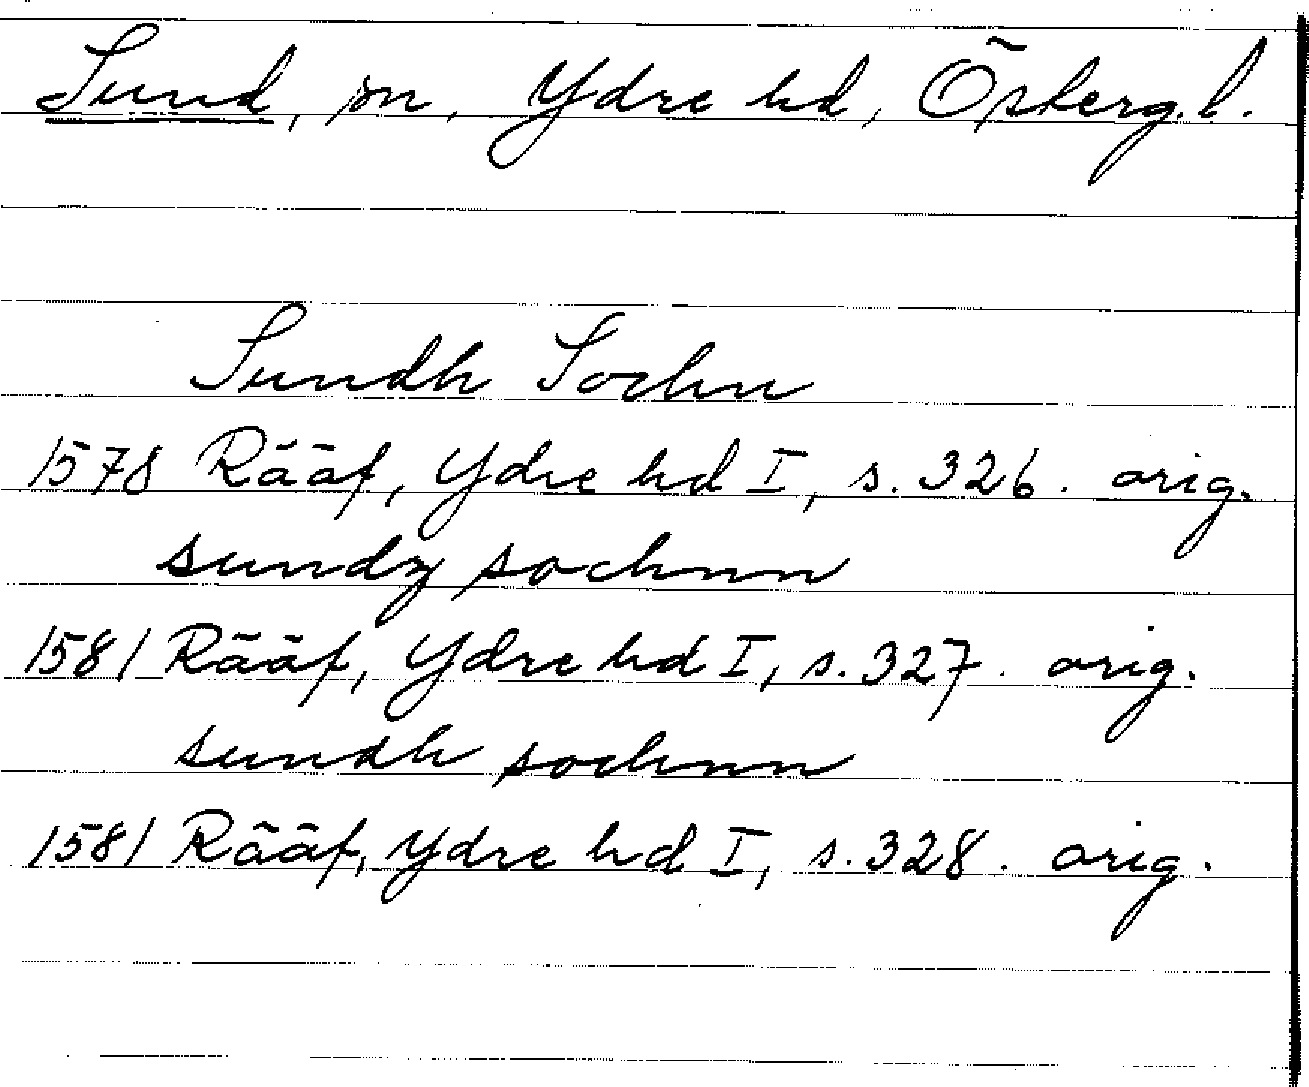 Sund, sn, Ydre hd, Östergl.
Sundh Sochn
1578 Rääf, Ydre hd I, s. 326. orig.
sundz sochnn
1581 Rääf, Ydre hd I, s. 327. orig.
sundh sochnn
1581 Rääf, Ydre hd I, s. 328. orig.